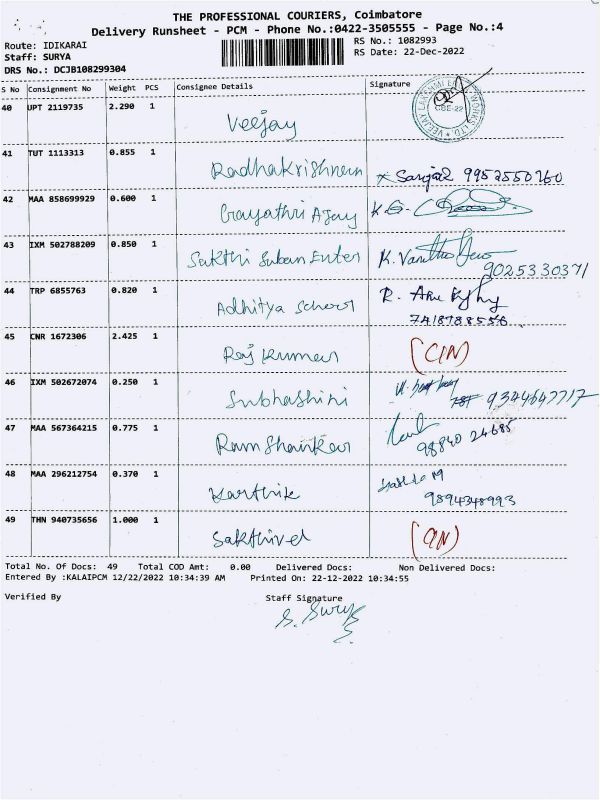 THE PROFESSIONAL COURIERS, Coimbatore
Delivery Runsheet - PCM - Phone No.:0422-3505555 - Page No.:4
Route: IDIKARAI
RS No.: 1082993
Staff: SURYA
RS Date: 22-Dec-2022
DRS No.: DCJB108299304
S No Consignment No Weight PCS Consignee Details Signature
40 UPT 2119735 2.290 1 Veejay
41 TUT 1113313 0.855 1 Radhakrishnan 9952550260
42 MAA 858699929 0.600 1 Gayathri Ajay K.G.
43 IXM 502788209 0.850 1 Sakthi Suban Enter K.
9025330371
44 TRP 6855763 0.820 1 Adhitya School R.
7418788556
45 CNR 1672306 2.425 1 Rajkumar (CIN)
46 IXM 502672074 0.250 1 Subhashini 9344647717
47 MAA 567364215 0.775 1 Ram Shankar
98840 24685
48 MAA 296212754 0.370 1 Karthik
9894348993
49 THN 940735656 1.000 1 Sakthivel
Total No. Of Docs: 49 Total COD Amt: 0.00 Delivered Docs: Non Delivered Docs:
Entered By :KALAIPCM 12/22/2022 10:34:39 AM Printed On: 22-12-2022 10:34:55
Verified By Staff Signature
S. Surya